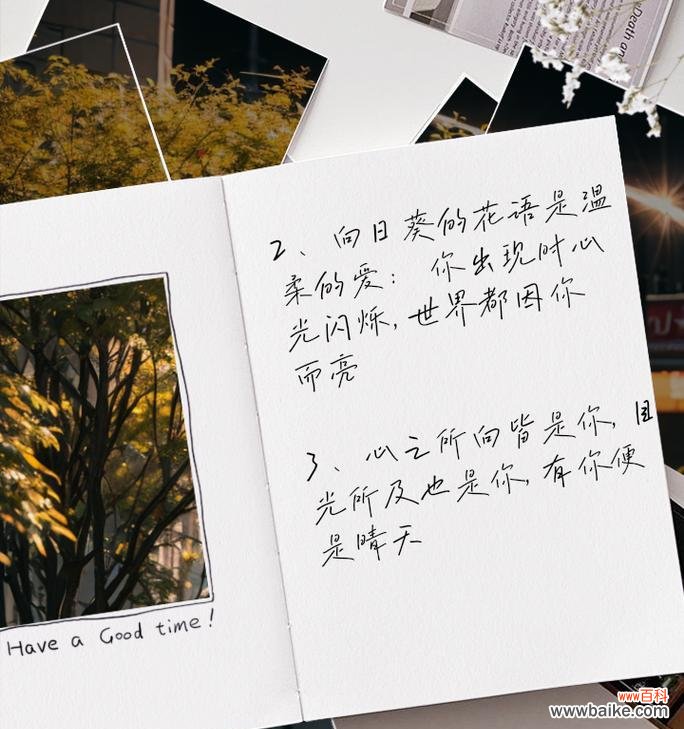 Death an
2、向日葵的花语是温
柔的爱：你出现时心
光闪烁，世界都因你
而亮
3、心之所向皆是你，目
光所及也是你，有你便
是晴天
Have a Good time!
www百科
www.baike.com